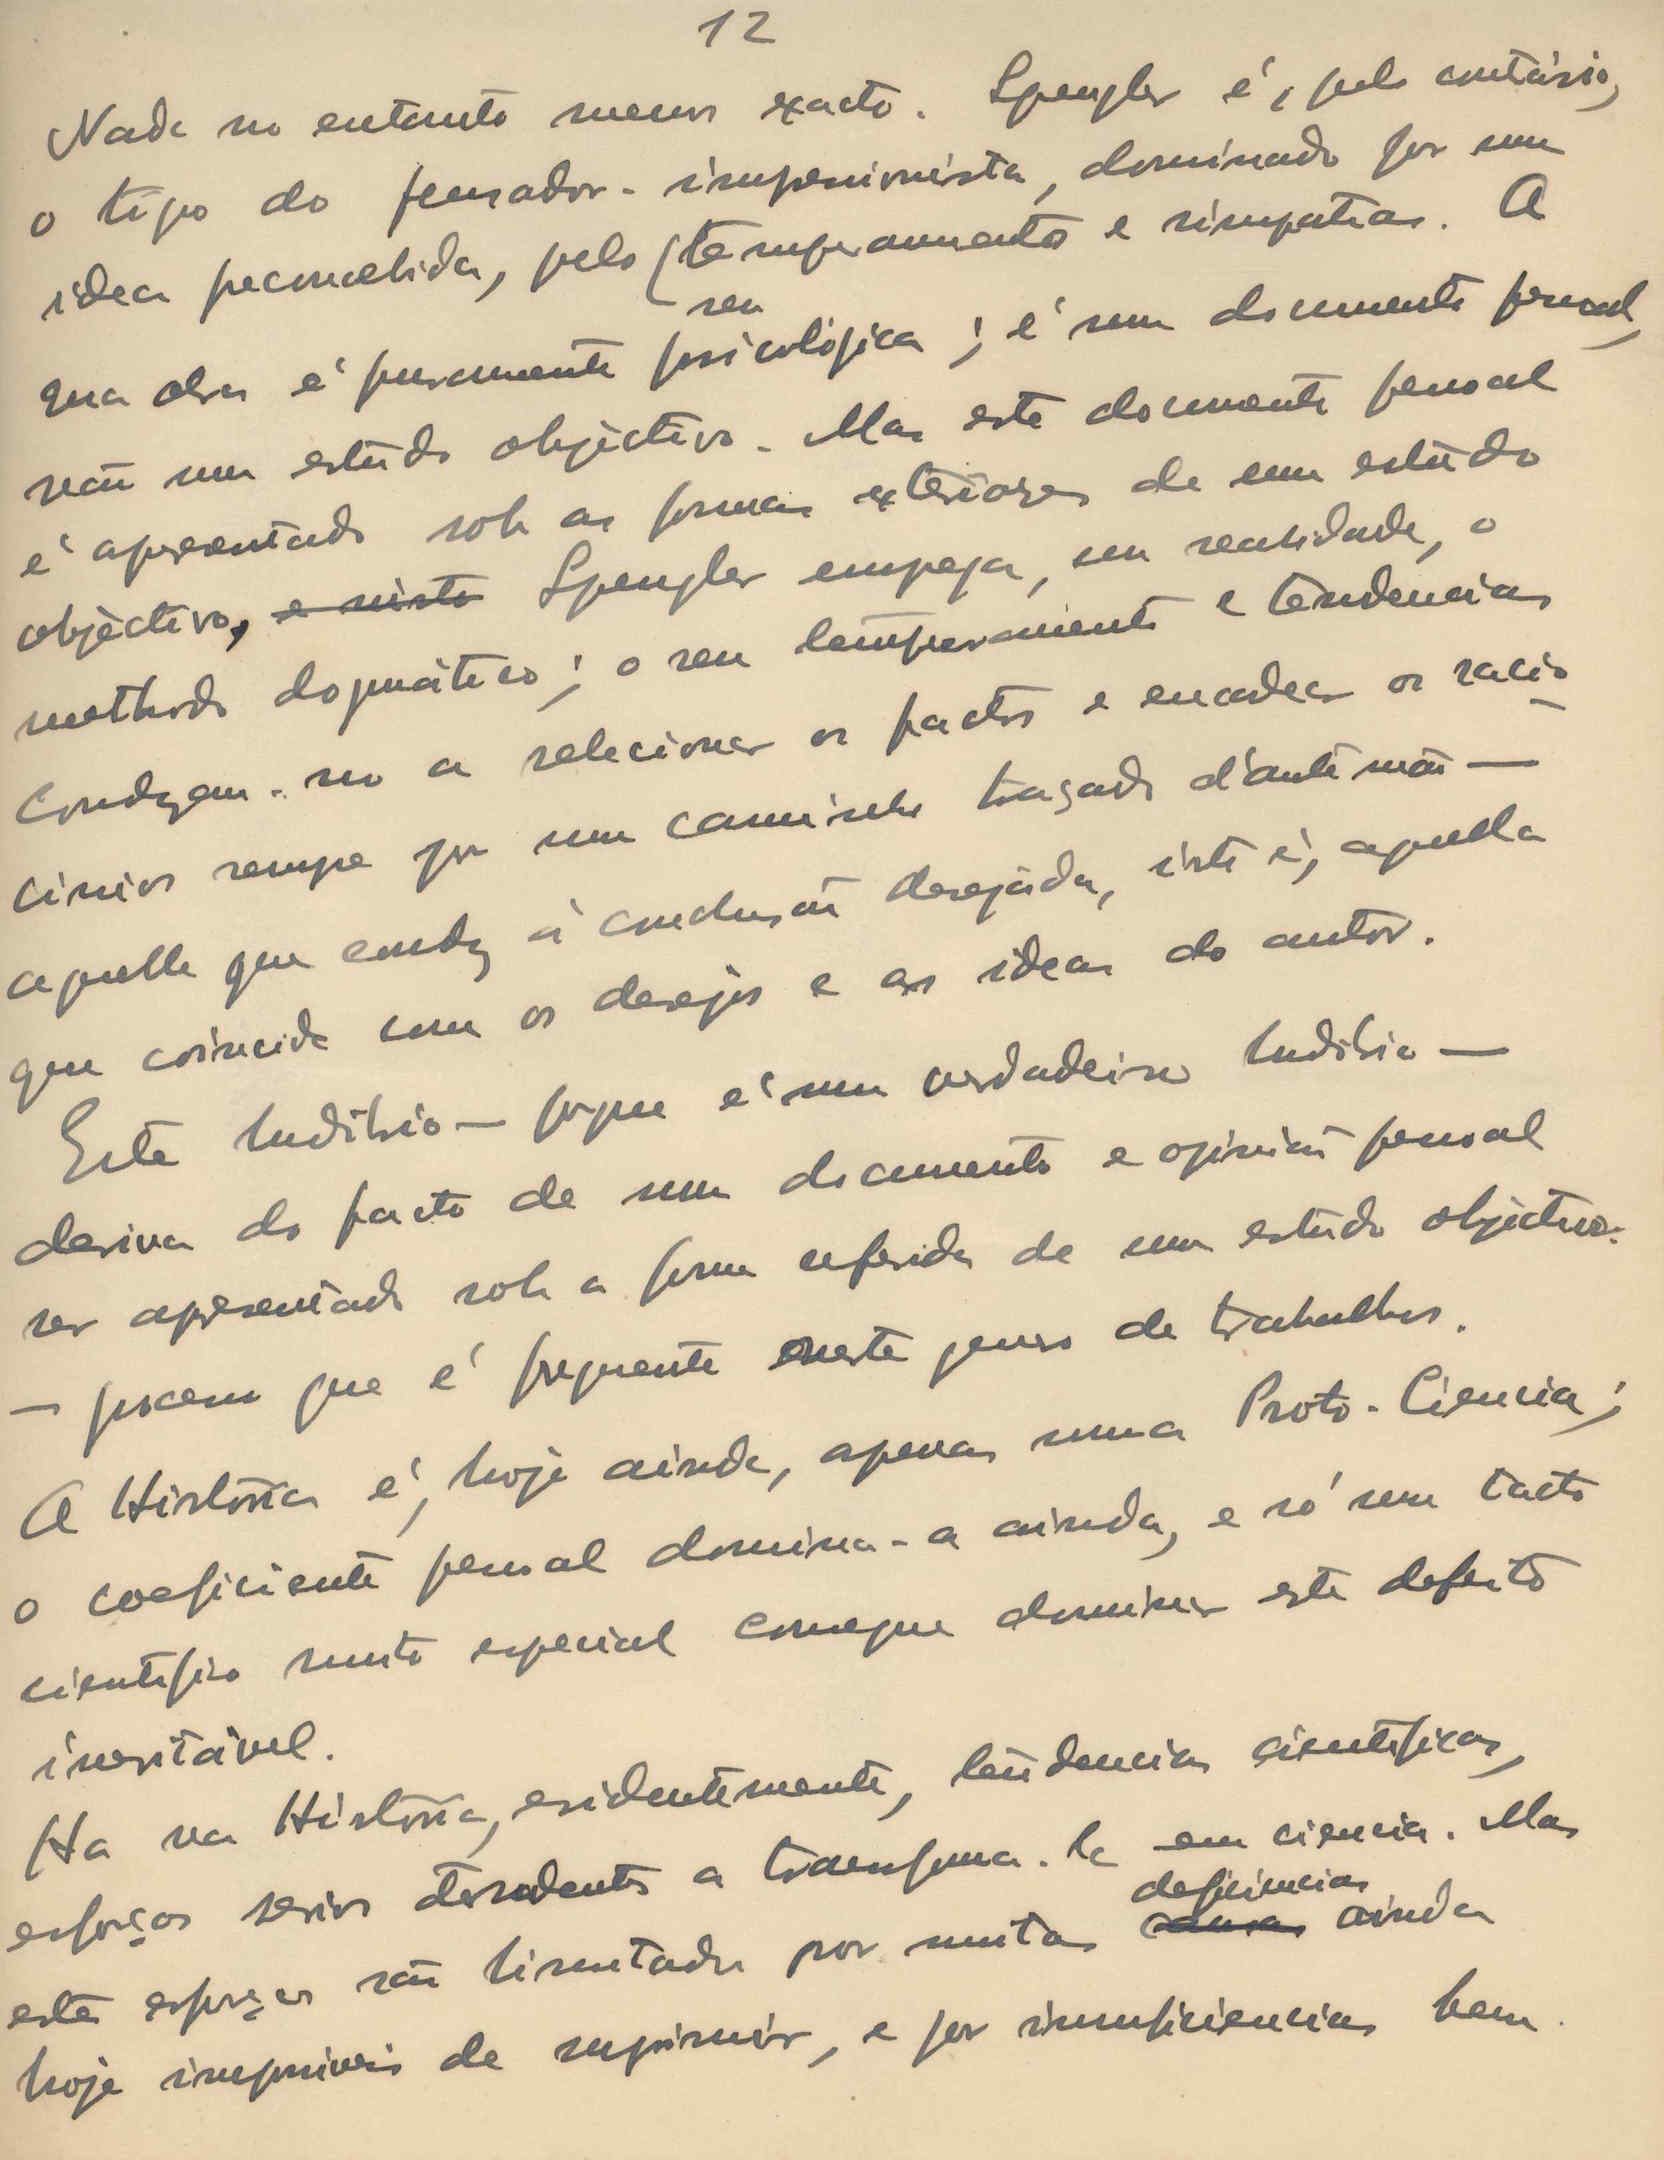 12
Nada no entanto menos exacto. Spengler é, pelo contrário,
o tipo do pensador-impressionista, dominado por uma
idea preconcebida, pelo seu temperamento e simpatias. A
sua obra é puramente psicológica; é um documento pessoal,
não um estudo objectivo. Mas este documento pessoal
é apresentado sob as formas exteriores de um estudo
objectivo, e nisto Spengler emprega, em realidade, o
methodo dogmático; o seu temperamento e tendencias
conduzem-no a selecionar os factos e encadear os racio-
cinios sempre por um caminho traçado d'ante mão —
aquelle que conduz á conclusão desejada, isto é, aquella
que coincide com os desejos e as ideas do autor.
Este ludibrio — porque é um verdadeiro ludibrio —
deriva do facto de um documento e opinião pessoal
ser apresentado sob a forma referida de um estudo objectivo.
— processo que é frequente neste genero de trabalhos.
A História é, hoje ainda, apenas uma Proto-Ciencia;
o coeficiente pessoal domina-a ainda, e só um tacto
cientifico muito especial consegue dominar este defeito
inevitável.
Ha na História, evidentemente, tendencias cientificas,
esforços serios tendentes a transforma-la em ciencia. Mas
estes esforços são limitados por muitas causas deficiencias ainda
hoje impossiveis de suprimir, e por insuficiencias bem